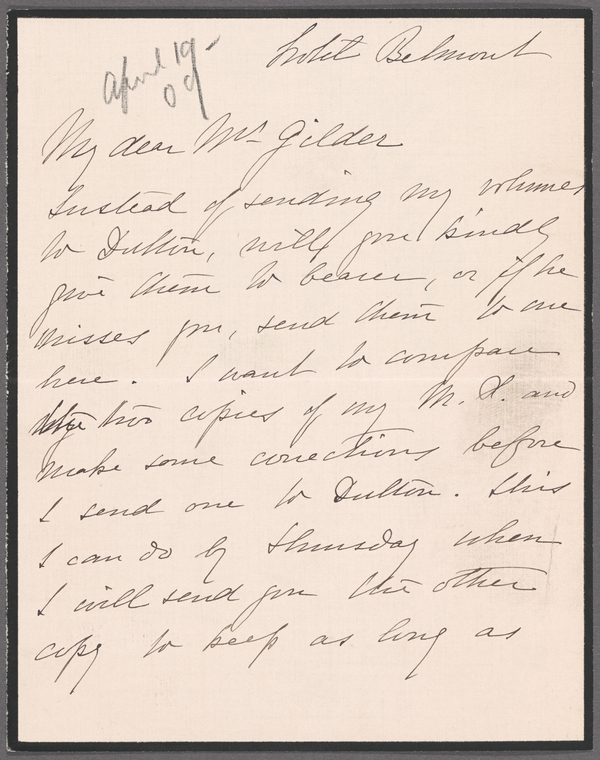 April 19-
09
Hotel Belmont
My dear Mr Gilder
Instead of sending my volumes
to Dutton, will you kindly
give them to bearer, or if he
misses you, send them to me
here. I want to compare
two copies of my M.S. and
make some corrections before
I send one to Dutton. This
I can do by Thursday when
I will send you the other
copy to keep as long as